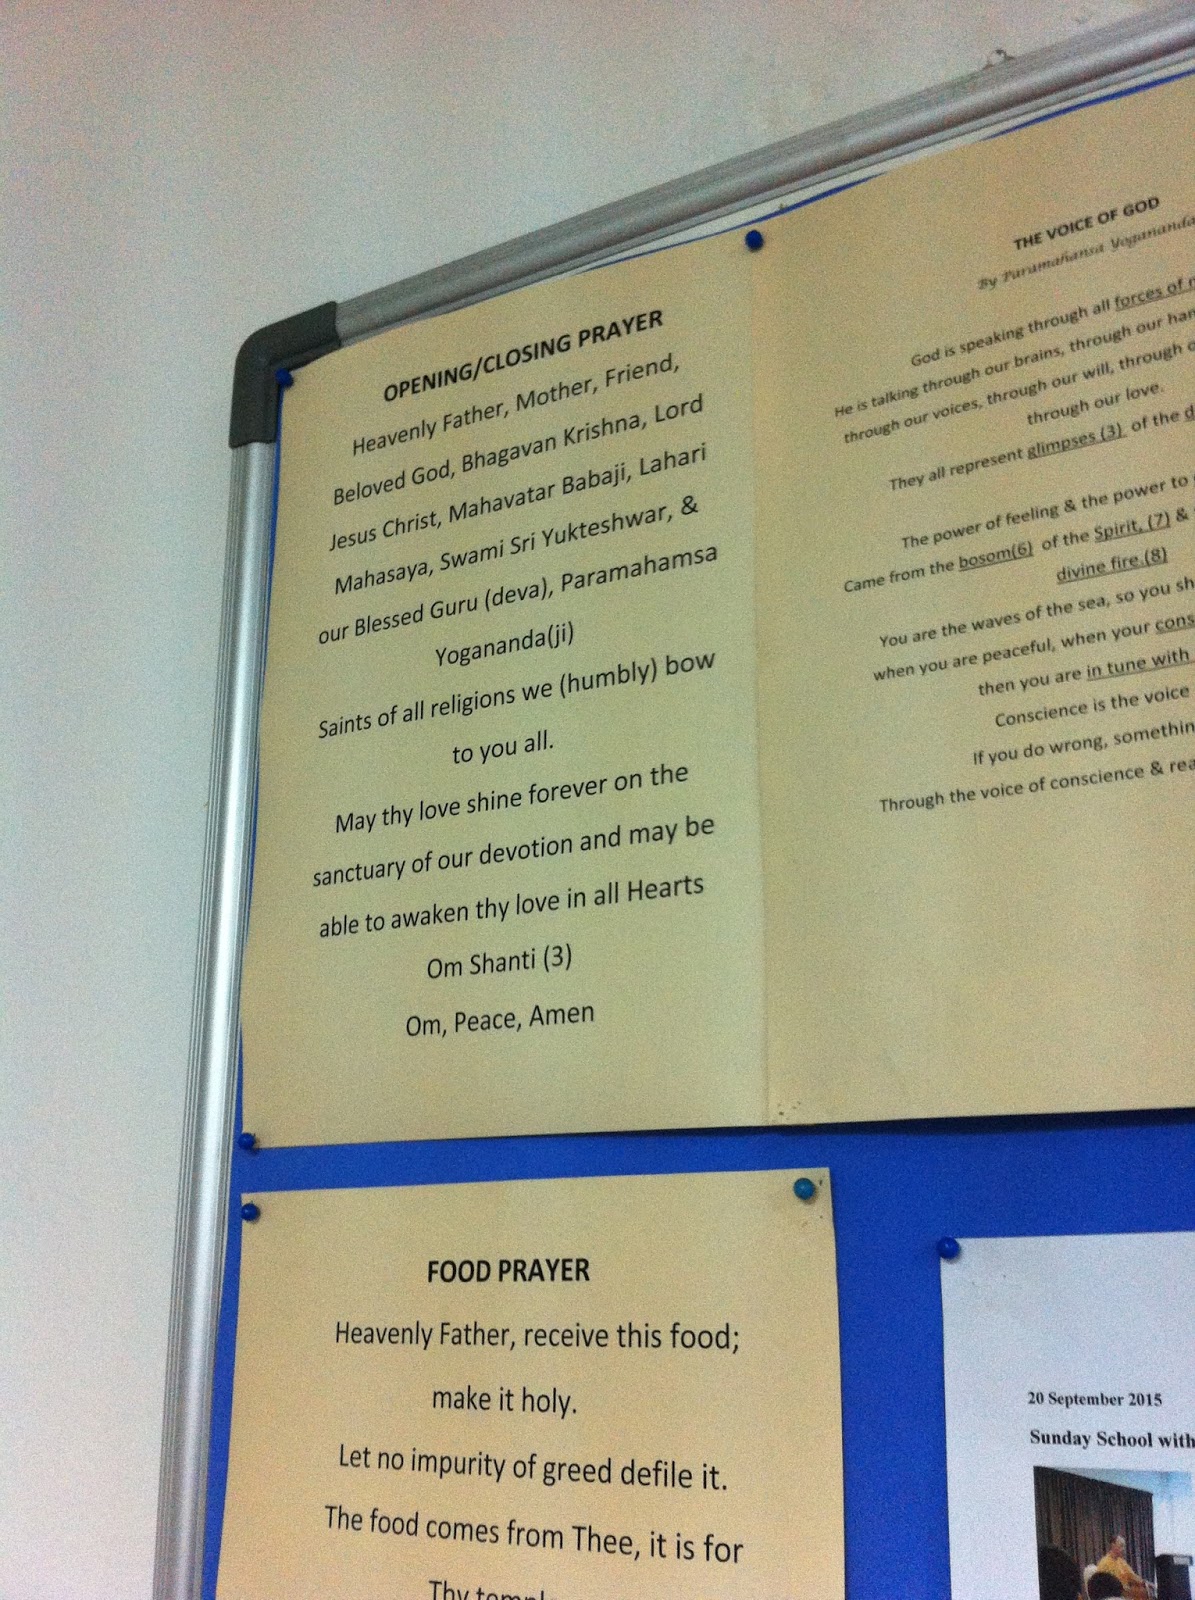 OPENING/CLOSING PRAYER
Heavenly Father, Mother, Friend,
Beloved God, Bhagavan Krishna, Lord
Jesus Christ, Mahavatar Babaji, Lahari
Mahasaya, Swami Sri Yukteshwar, &
our Blessed Guru (deva), Paramahamsa
Yogananda(ji)
Saints of all religions we (humbly) bow
to you all.
May thy love shine forever on the
sanctuary of our devotion and may be
able to awaken thy love in all Hearts
Om Shanti (3)
Om, Peace, Amen
THE VOICE OF GOD
By Paramahansa Yogananda
God is speaking through all forces of
He is talking through our brains, through our
through our voices, through our will, through
through our love.
They all represent glimpses (3) of the
The power of feeling & the power to
Came from the bosom(6) of the Spirit, (7) &
divine fire.(8)
You are the waves of the sea, so you
when you are peaceful, when your
then you are in tune with
Conscience is the voice
If you do wrong,
Through the voice of conscience &
FOOD PRAYER
Heavenly Father, receive this food;
make it holy.
Let no impurity of greed defile it.
The food comes from Thee, it is for
Thy
20 September 2015
Sunday School with